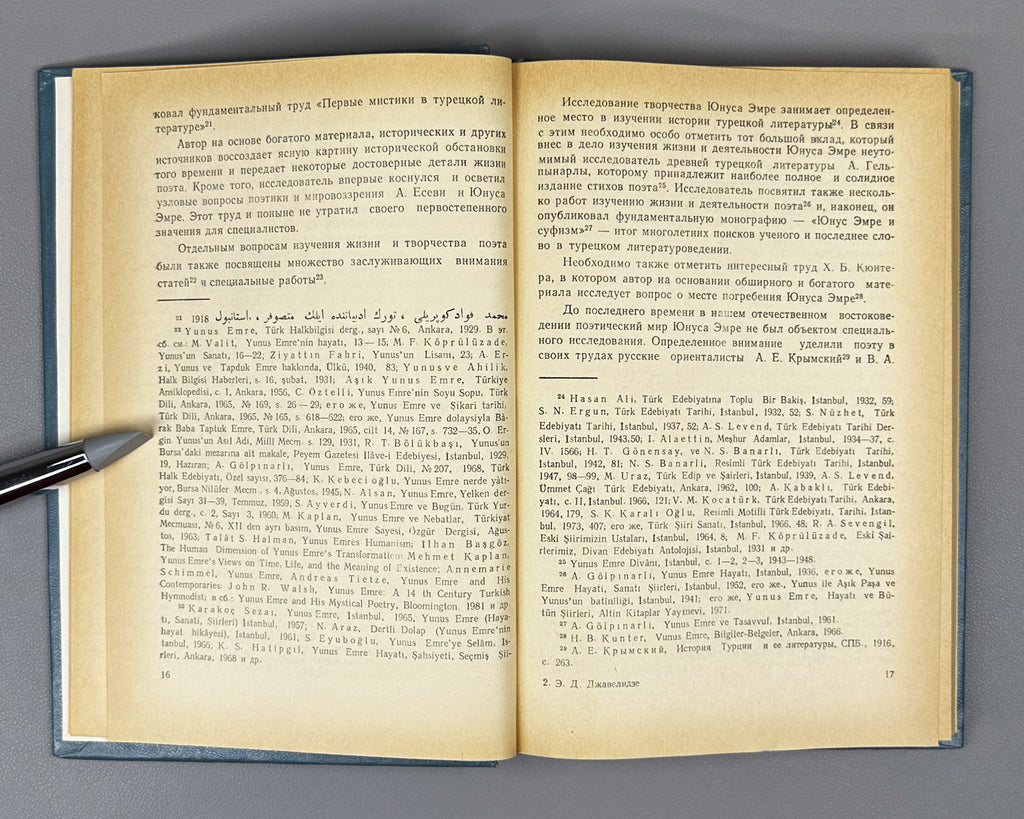 ковал фундаментальный труд «Первые мистики в турецкой ли-
тературе»²¹.
Автор на основе богатого материала, исторических и других
источников воссоздает ясную картину исторической обстановки
того времени и передает некоторые достоверные детали жизни
поэта. Кроме того, исследователь впервые коснулся и осветил
узловые вопросы поэтики и мировоззрения А. Есеви и Юнуса
Эмре. Этот труд и поныне не утратил своего первостепенного
значения для специалистов.
Отдельным вопросам изучения жизни и творчества поэта
были также посвящены множество заслуживающих внимания
статей²² и специальные работы²³.
²¹ محمد فوادكوپریلی ، تورك ادبیاتنده ایلك متصوفر ، استانبول 1918
²² Yunus Emre, Türk Halkbilgisi derg., sayı №6, Ankara, 1929. В эт.
сб. см.: M. Valit, Yunus Emre'nin hayatı, 13—15; M. F. Köprülüzade,
Yunus'un Sanatı, 16—22; Ziyattin Fahri, Yunus'un Lisanı, 23; A. Er-
zi, Yunus ve Tapduk Emre hakkında, Ülkü, 1940, 83; Yunus ve Ahilik,
Halk Bilgisi Haberleri, s. 16, şubat, 1931; Aşık Yunus Emre, Türkiye
Ansiklopedisi, c. 1, Ankara, 1956, C. Öztelli, Yunus Emre'nin Soyu Sopu, Türk
Dili, Ankara, 1965, № 169, s. 26—29; его же, Yunus Emre ve Şikari tarihi,
Türk Dili, Ankara, 1965, №165, s. 618—622; его же, Yunus Emre dolaysiyla Bâ-
rak Baba Taptuk Emre, Türk Dili, Ankara, 1965, cilt 14, №167, s. 732—35, O. Er-
gin. Yunus'un Asıl Adı, Millî Mecm. s. 129, 1931, R. T. Bölükbaşı, Yunus'un
Bursa'daki mezarına ait makale, Peyem Gazetesi Ilâve-i Edebiyesi, Istanbul, 1929,
19, Haziran; A. Gölpınarlı, Yunus Emre, Türk Dili, №207, 1968, Türk
Halk Edebiyatı, Özel sayısı, 376—84; K. Kebeci oğlu, Yunus Emre nerde yâti-
yor, Bursa Nilüfer Mecm., s. 4. Ağustos, 1945; N. Alsan, Yunus Emre, Yelken der-
gisi Sayı 31—39, Temmuz, 1959, S. Ayverdi, Yunus Emre ve Bugün. Türk Yur-
du derg., c. 2, Sayı 3, 1960; M. Kaplan, Yunus Emre ve Nebatlar, Türkiyat
Mecmuası, №6, XII den ayrı basim, Yunus Emre Sayesi, Özgür Dergisi, Ağus-
tos, 1963; Talât S. Halman, Yunus Emres Humanism; Ilhan Başgöz,
The Human Dimension of Yunus Emre's Transformation; Mehmet Kaplan,
Yunus Emre's Views on Time, Life, and the Meaning of Existence; Annemarie
Schimmel, Yunus Emre, Andreas Tietze, Yunus Emre and His
Contemporaries; John R. Walsh, Yunus Emre: A 14 th Century Turkish
Hymnodist; в сб.: Yunus Emre and His Mystical Poetry, Bloomington, 1981 и др
²³ Karakoç Sezai, Yunus Emre, Istanbul, 1965, Yunus Emre (Haya-
tı, Sanati, Siirleri) Istanbul, 1957; N. Araz, Dertli Dolap (Yunus Emre'nin
hayat hikâyesi), Istanbul, 1961, S. Eyuboğlu, Yunus Emre'ye Selâm, Is-
tanbul, 1966; K. S. Hatipgil, Yunus Emre Hayatı, Şahsiyeti, Seçmiş Şii-
rleri, Ankara, 1968 и др.
16
Исследование творчества Юнуса Эмре занимает определен-
ное место в изучении истории турецкой литературы²⁴. В связи
с этим необходимо особо отметить тот большой вклад, который
внес в дело изучения жизни и деятельности Юнуса Эмре неуто-
мимый исследователь древней турецкой литературы А. Гель-
пынарлы, которому принадлежит наиболее полное и солидное
издание стихов поэта²⁵. Исследователь посвятил также несколь-
ко работ изучению жизни и деятельности поэта²⁶ и, наконец, он
опубликовал фундаментальную монографию — «Юнус Эмре и
суфизм»²⁷ — итог многолетних поисков ученого и последнее сло-
во в турецком литературоведении.
Необходимо также отметить интересный труд Х. Б. Кюнте-
ра, в котором автор на основании обширного и богатого мате-
риала исследует вопрос о месте погребения Юнуса Эмре²⁸.
До последнего времени в нашем отечественном востокове-
дении поэтический мир Юнуса Эмре не был объектом специаль-
ного исследования. Определенное внимание уделили поэту в
своих трудах русские ориенталисты А. Е. Крымский²⁹ и В. А.
²⁴ Hasan Ali, Türk Edebiyatına Toplu Bir Bakiş, Istanbul, 1932, 59;
S. N. Ergun, Türk Edebiyatı Tarihi, Istanbul, 1932, 52; S. Nüzhet, Türk
Edebiyatı Tarihi, Istanbul, 1937, 52; A. S. Levend, Türk Edebiyatı Tarihi Der-
sleri, Istanbul, 1943,50; I. Alaettin, Meşhur Adamlar, Istanbul, 1934—37, c.
IV. 1566; H. T. Gönensay, ve N. S. Banarlı, Türk Edebiyatı Tarihi,
Istanbul, 1942, 81; N. S. Banarli, Resimli Türk Edebiyatı Tarihi, Istanbul,
1947, 98—99, M. Uraz, Türk Edip ve Şairleri, Istanbul, 1939, A. S. Levend,
Ümmet Çağı Türk Edebiyatı, Ankara, 1962, 100; A. Kabaklı, Türk Edebi-
yatı, c. II, Istanbul. 1966, 121; V. M. Kocatürk, Türk Edebiyatı Tarihi, Ankara,
1964, 179, S. K. Karalı Oğlu, Resimli Motifli Türk Edebiyatı Tarihi, Istan-
bul, 1973, 407; его же, Türk Şiiri Sanatı, Istanbul, 1966, 48; R. A. Sevengil,
Eski Şiirimizin Ustaları, Istanbul, 1964, 8; M. F. Köprülüzade, Eski Şai-
rlerimiz, Divan Edebiyatı Antolojisi, Istanbul, 1931 и др.
²⁵ Yunus Emre Dîvânı, Istanbul, c. 1—2, 2—3, 1943—1948.
²⁶ A. Gölpınarlı, Yunus Emre Hayatı, Istanbul, 1936, его же, Yunus
Emre Hayatı, Sanatı Şiirleri, Istanbul, 1952, его же., Yunus ile Aşık Paşa ve
Yunus'un batinîliği, Istanbul, 1941; его же, Yunus Emre, Hayatı ve Bü-
tün Şiirleri, Altin Kitaplar Yayınevi, 1971.
²⁷ A. Gölpınarlı, Yunus Emre ve Tasavvuf, Istanbul, 1961.
²⁸ H. B. Kunter, Vunus Emre, Bilgiler-Belgeler, Ankara, 1966.
²⁹ А. Е. Крымский, История Турции и ее литературы, СПБ., 1916,
с. 263.
2. Э. Д. Джавелидзе
17